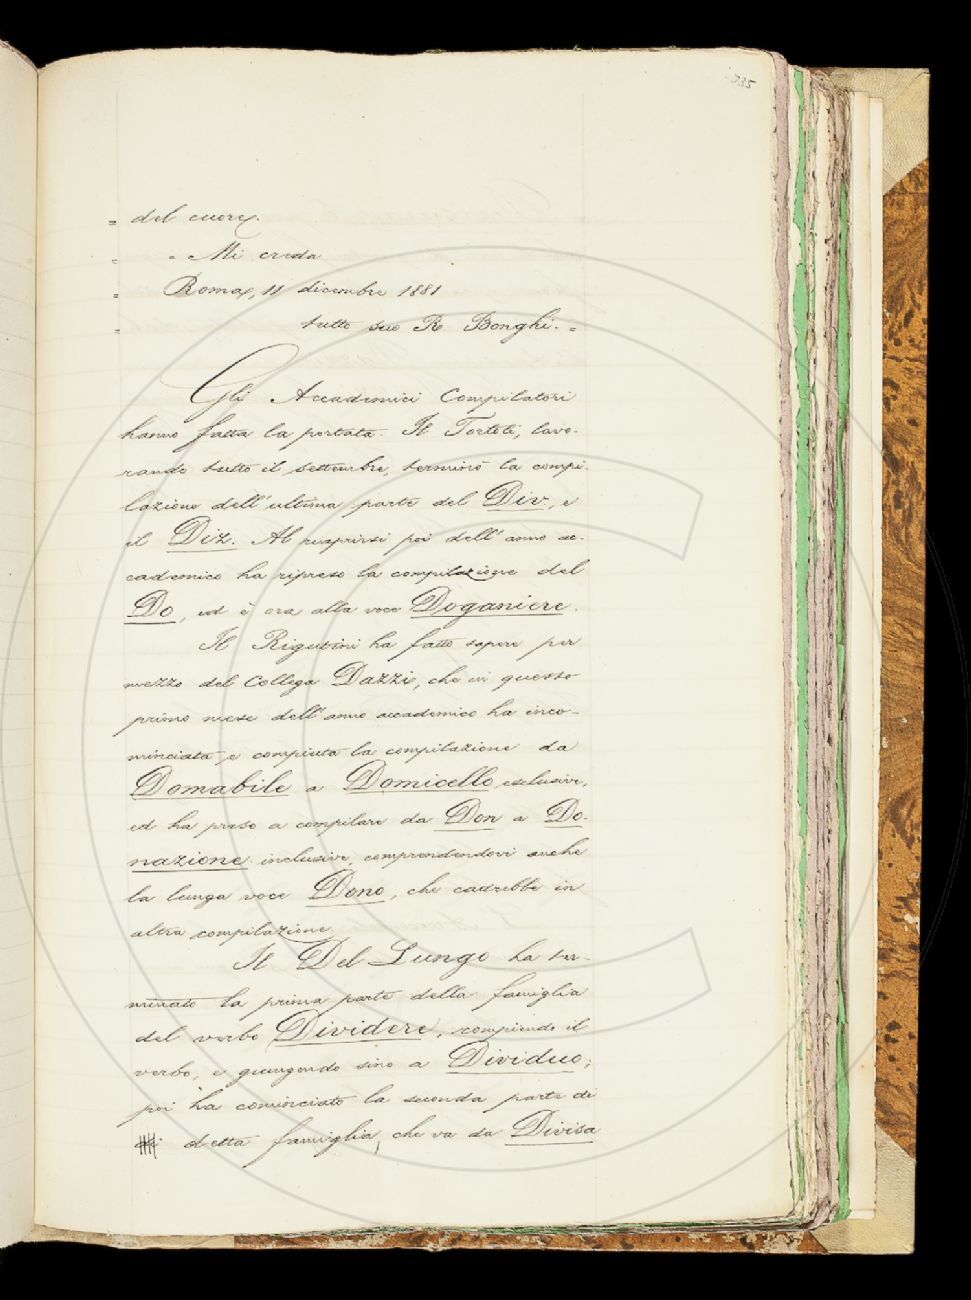 335
= del cuore.
= - Mi creda
= Roma, 11 dicembre 1881
= tutto suo R. Bonghi. =
Gli Accademici Compilatori
hanno fatta la portata. Il Tortoli, lavo-
rando tutto il settembre, terminò la compi-
lazione dell'ultima parte del Div, e
il Diz. Al riaprirsi poi dell'anno ac-
cademico ha ripreso la compilazione del
Do, ed è ora alla voce Doganiere.
Il Rigutini ha fatto sapere per
mezzo del Collega Dazzi, che in questo
primo mese dell'anno accademico ha inco-
minciata, e compiuta la compilazione da
Domabile a Domicello esclusive,
ed ha preso a compilare da Don a Do-
nazione inclusive, comprendendovi anche
la lunga voce Dono, che cadrebbe in
altra compilazione.
Il Del Lungo ha ter-
minato la prima parte della famiglia
del verbo Dividere, compiendo il
verbo, e giungendo sino a Dividuo;
poi ha cominciato la seconda parte di
detta famiglia, che va da Divisa